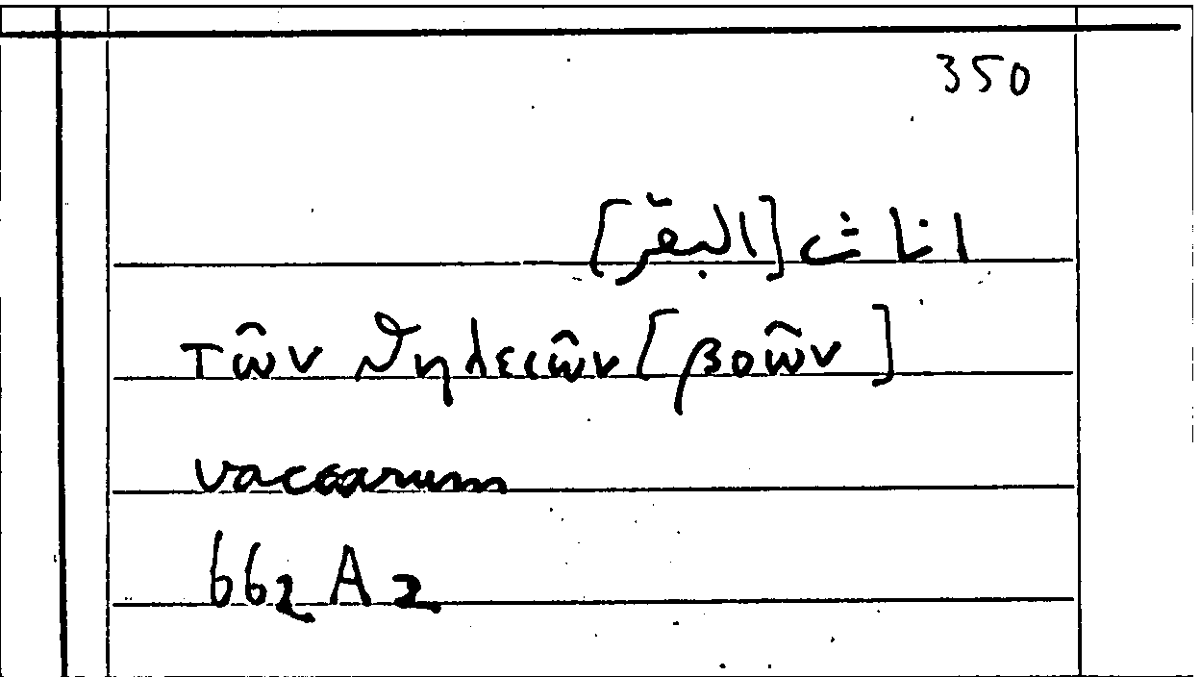 350
اناث [البقر]
τῶν θηλειῶν [βοῶν]
vaccarum
662 A 2